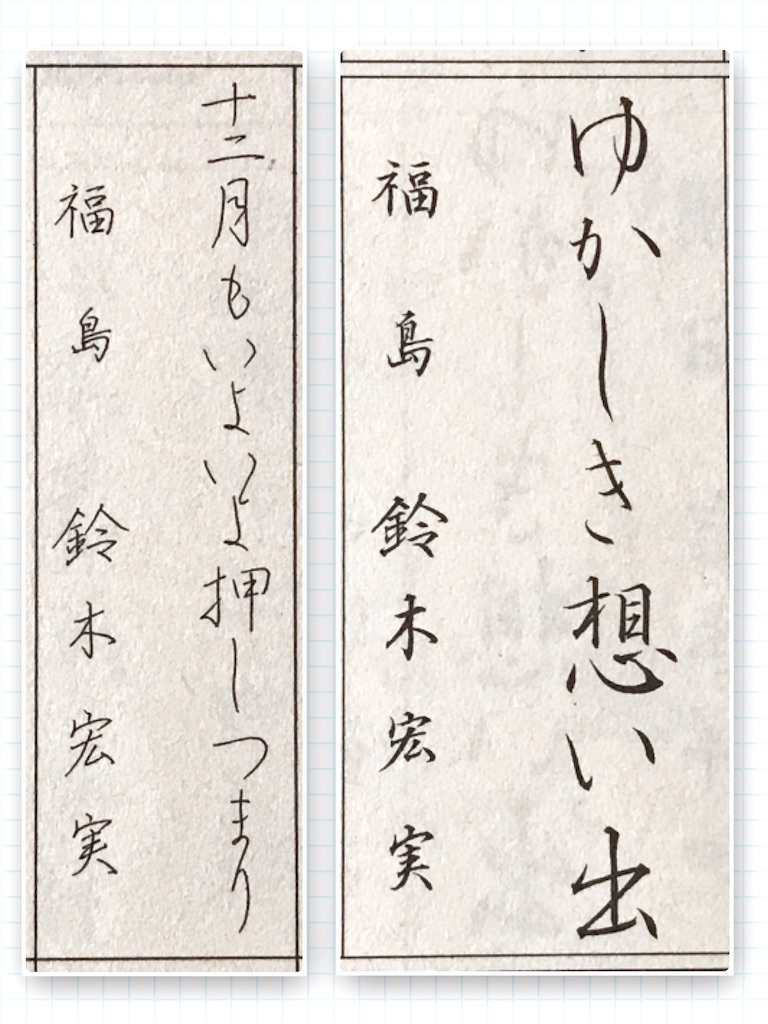 十二月もいよいよ押しつまり
福島 鈴木宏実
ゆかしき想い出
福島 鈴木宏実